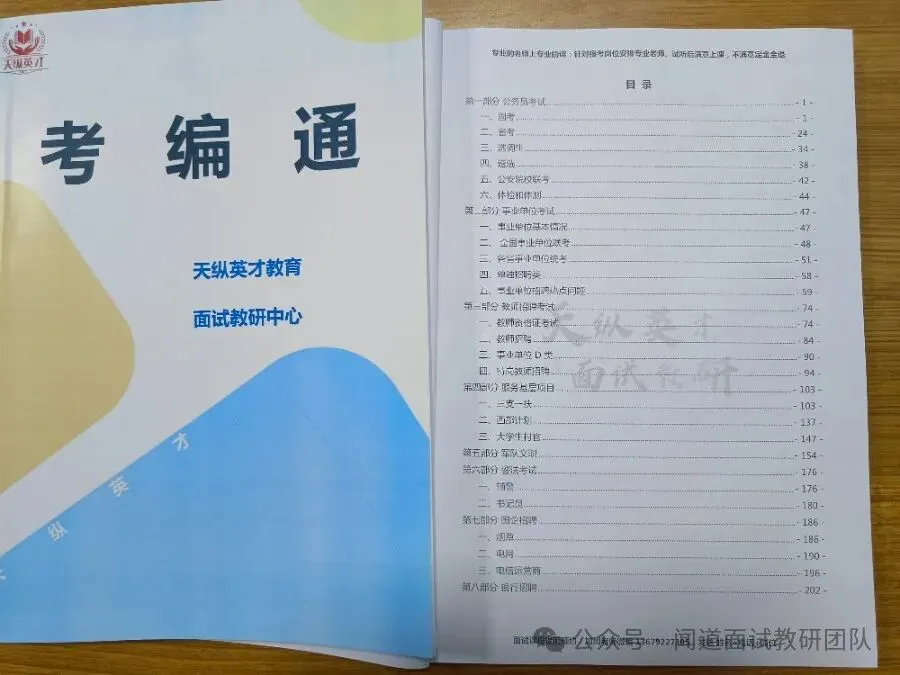 天纵英才
考 编 通
天纵英才教育
面试教研中心
纵 英 才
专业的老师上专业的课：针对报考岗位安排专业老师，试听后满意上课，不满意定金全退
目 录
第一部分 公务员考试 - 1 -
一、国考 - 1 -
二、省考 - 24 -
三、选调生 - 34 -
四、遴选 - 38 -
五、公安院校联考 - 42 -
六、体检和体测 - 44 -
第二部分 事业单位考试 - 47 -
一、事业单位基本情况 - 47 -
二、全国事业单位联考 - 48 -
三、各省事业单位统考 - 51 -
四、单独招聘类 - 58 -
五、事业单位招聘热点问题 - 59 -
第三部分 教师招聘考试 - 74 -
一、教师资格证考试 - 74 -
二、教师招聘 - 84 -
三、事业单位 D 类 - 90 -
四、特岗教师招聘 - 94 -
第四部分 服务基层项目 - 103 -
一、三支一扶 - 103 -
二、西部计划 - 137 -
三、大学生村官 - 147 -
第五部分 军队文职 - 154 -
第六部分 省法考试 - 176 -
一、辅警 - 176 -
二、书记员 - 180 -
第七部分 国企招聘 - 186 -
一、烟草 - 186 -
二、电网 - 190 -
三、电信运营商 - 196 -
第八部分 银行招聘 - 202 -
天纵英才
面试教研
公众号 闻道面试教研团队